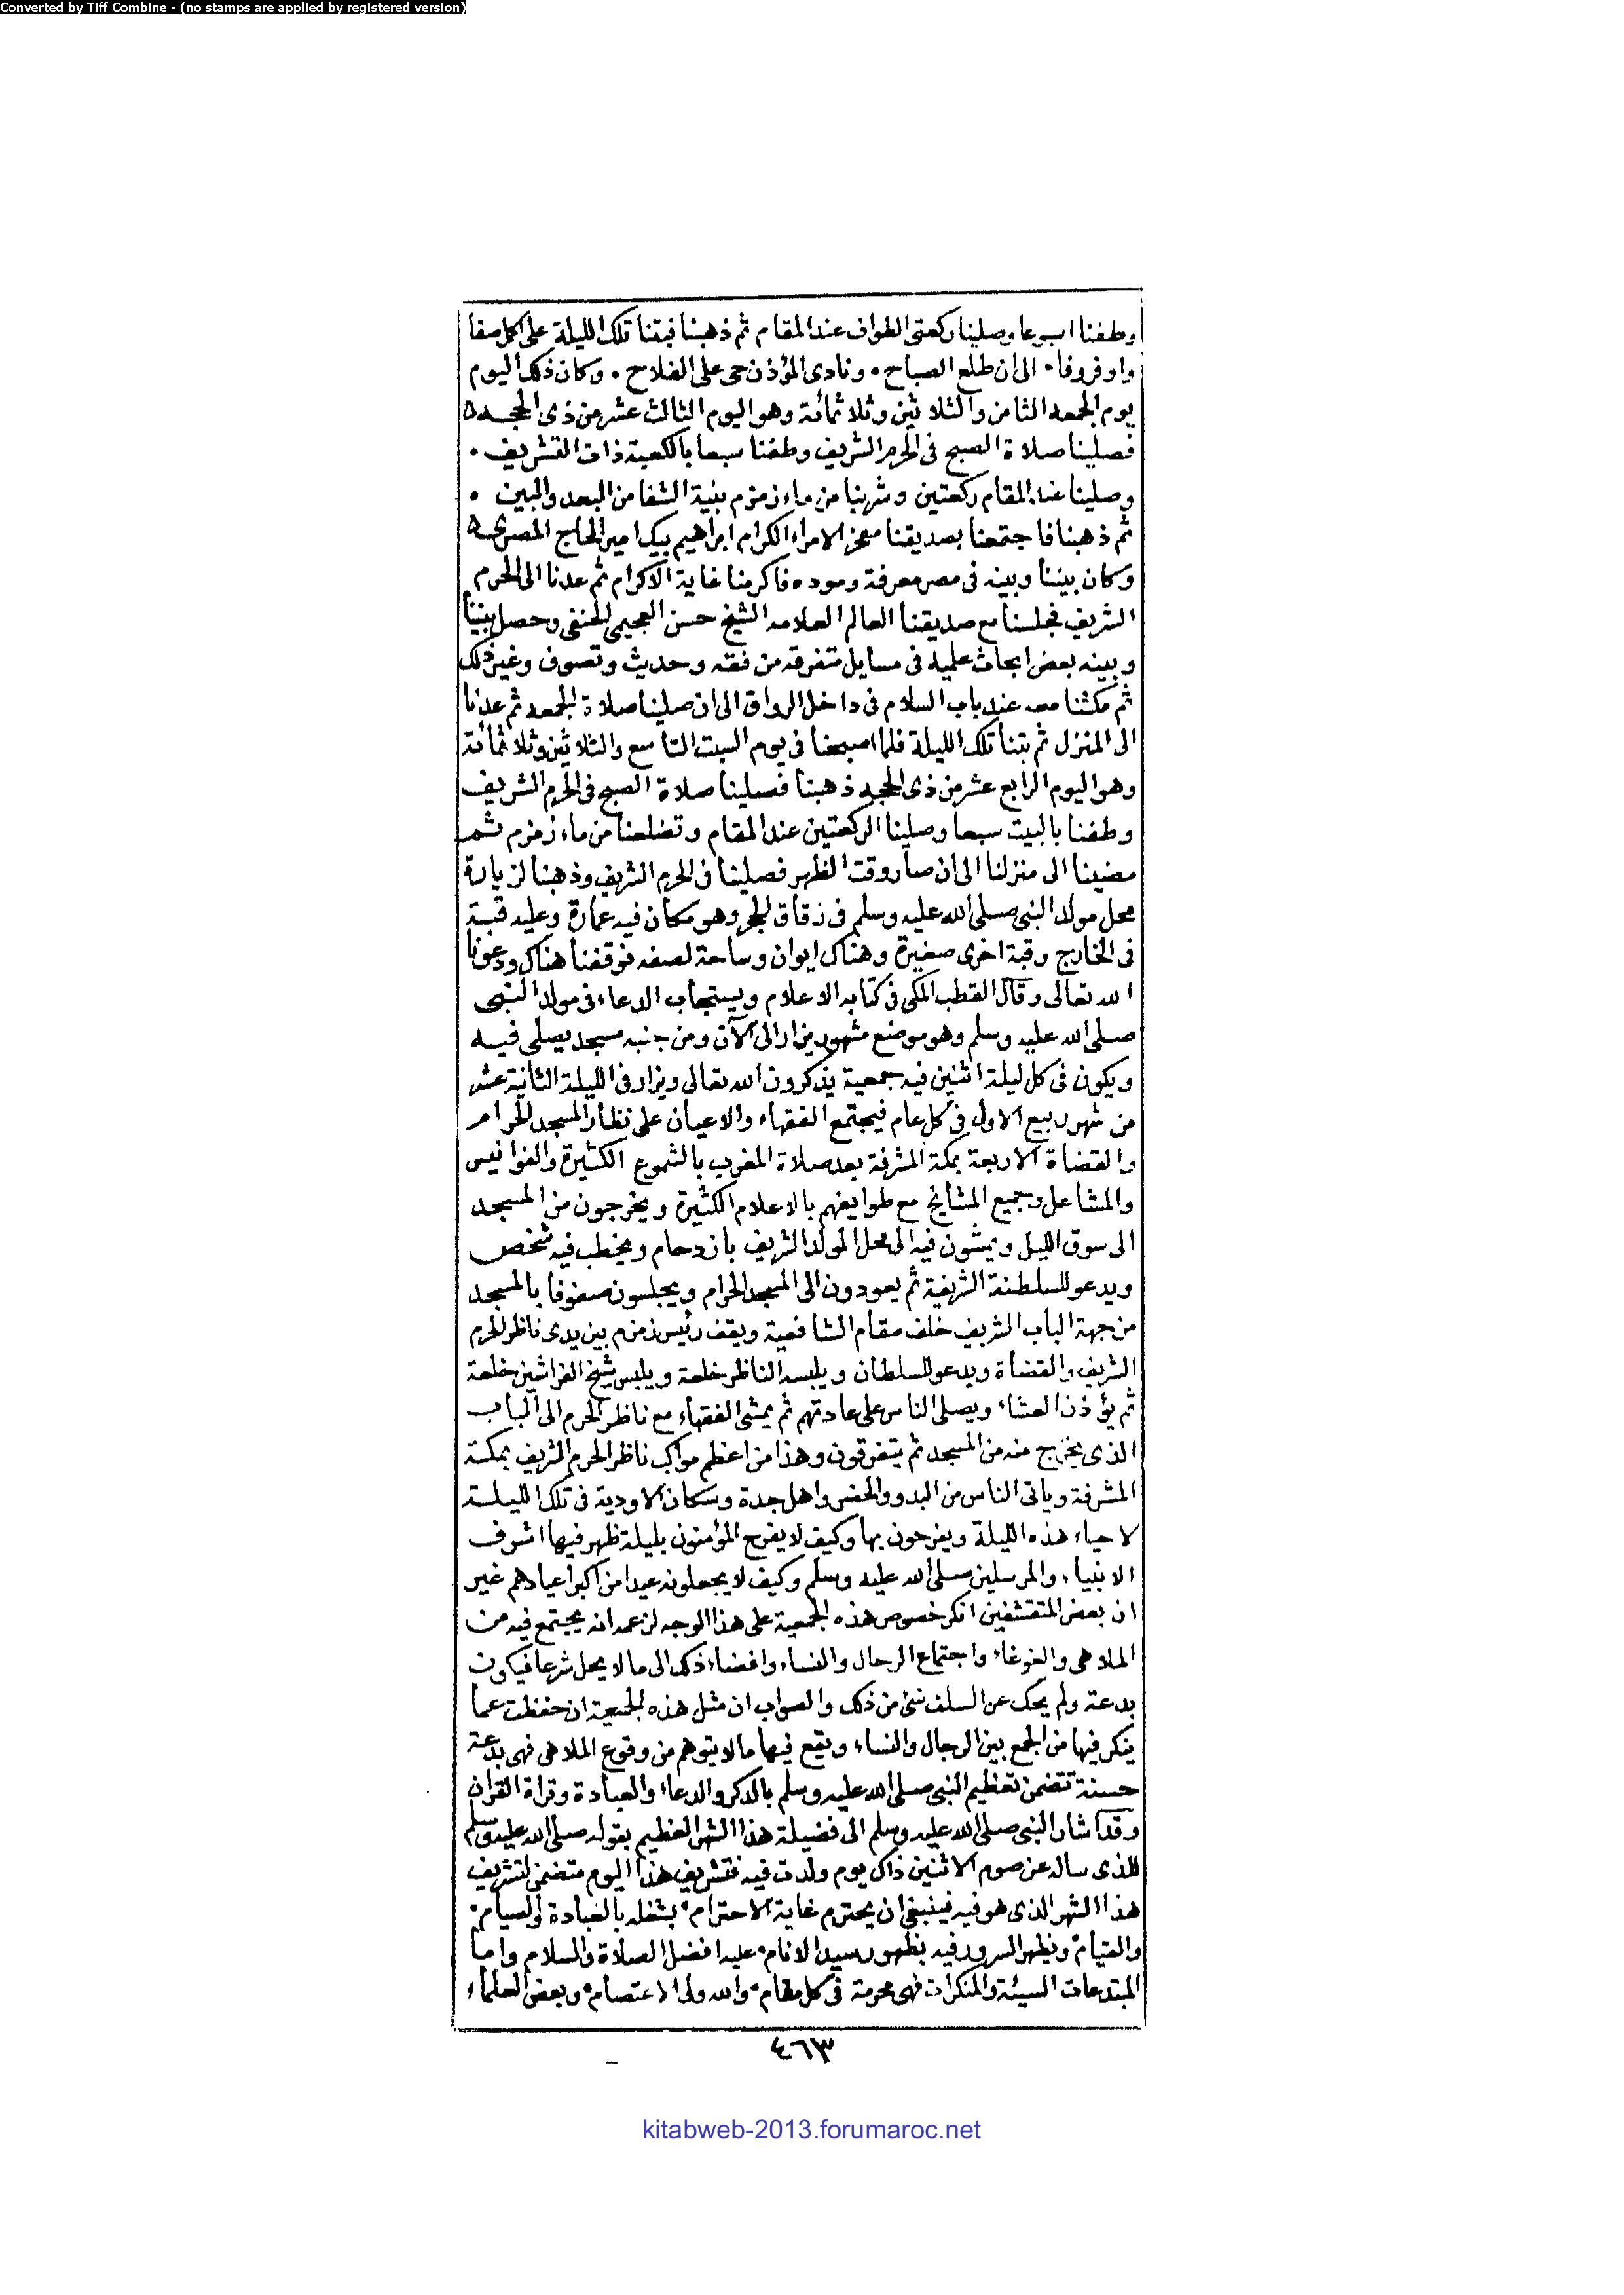 Converted by Tiff Combine - (no stamps are applied by registered version)
وطفنا اسبوعا وصلينا ركعتى الطواف عند المقام ثم ذهبنا فبتنا تلك الليلة على اكل صفا
واوفر وفا ۰ الى ان طلع الصباح ۰ ونادى المؤذن حى على الفلاح ۰ وكان ذلك اليوم
يوم الجمعه الثامن والثلاثين وثلاثمائة وهو اليوم الثالث عشر من ذى الحجه ه
فصلينا صلاة الصبح فى الحرم الشريف وطفنا سبعا بالكعبة ذات التشريف ۰
وصلينا عند المقام ركعتين وشربنا من ماء زمزم بنية الشفا من البعد والبين ۰
ثم ذهبنا فاجتمعنا بصديقنا معز الامراء الكرام ابراهيم بيك امير الحاج المصرى ه
وكان بيننا وبينه فى مصر معرفة وموده فاكرمنا غاية الاكرام ثم عدنا الى الحرم
الشريف فجلسنا مع صديقنا العالم العلامه الشيخ حسن العجيمى الحنفى وحصل بيننا
وبينه بعض ابحاث علميه فى مسايل متفرقه من فقه وحديث وتصوف وغير ذلك
ثم مكثنا معه عند باب السلام فى داخل الرواق الى ان صلينا صلاة الجمعه ثم عدنا
الى المنزل ثم بتنا تلك الليلة فلما اصبحنا فى يوم السبت التاسع والثلاثين وثلاثمائة
وهو اليوم الرابع عشر من ذى الحجه ذهبنا فصلينا صلاة الصبح فى الحرم الشريف
وطفنا بالبيت سبعا وصلينا الركعتين عند المقام وتضلعنا من ماء زمزم ثم
مضينا الى منزلنا الى ان صار وقت الظهر فصلينا فى الحرم الشريف وذهبنا لزيارة
محل مولد النبى صلى الله عليه وسلم فى زقاق الحجر وهو مكان فيه عمارة وعليه قبة
فى الخارج وقبة اخرى صغيرة وهناك ايوان وساحة لصفه فوقفنا هناك ودعونا
الله تعالى وقال القطب المكى فى كتابه الاعلام ويستجاب الدعاء فى مولد النبى
صلى الله عليه وسلم وهو موضع مشهور يزار الى الآن ومن جنبه مسجد يصلى فيه
ويكون فى كل ليلة اثنين فيه جمعية يذكرون الله تعالى ويزار فى الليلة الثانية عشر
من شهر ربيع الاول فى كل عام فيجتمع الفقهاء والاعيان على نظار المسجد الحرام
والقضاة الاربعة بمكة المشرفة بعد صلاة المغرب بالشموع الكثيرة والفوانيس
والمشاعل وجميع المشايخ مع طوايفهم بالاعلام الكثيرة ويخرجون من المسجد
الى سوق الليل ويمشون فيه الى محل المولد الشريف بازدحام ويخطب فيه شخص
ويدعو للسلطنة الشريفة ثم يعودون الى المسجد الحرام ويجلسون صفوفا بالمسجد
من جهة الباب الشريف خلف مقام الشافعية ويقف رئيس زمزم بين يدى ناظر الحرم
الشريف والقضاة ويدعو للسلطان ويلبسه الناظر خلعة ويلبس شيخ الفراشين خلعة
ثم يؤذن العشاء ويصلى الناس على عادتهم ثم يمشى الفقهاء مع ناظر الحرم الى الباب
الذى يخرج منه من المسجد ثم يتفرقون وهذا من اعظم مواكب ناظر الحرم الشريف بمكة
المشرفة وياتى الناس من البدو والحضر واهل جدة وسكان الاودية فى تلك الليلة
لاحياء هذه الليلة ويفرحون بها وكيف لا يفرح المؤمنون بليلة ظهر فيها اشرف
الانبياء والمرسلين صلى الله عليه وسلم وكيف لا يجعلونه عيدا من اكبر اعيادهم غير
ان بعض المتقشفين انكر خصوص هذه الجمعية على هذا الوجه لزعمه انه يجتمع فيه من
الملاهى والغوغاء واجتماع الرجال والنساء وافضاء ذلك الى ما لا يحل شرعا فيكون
بدعة ولم يحك عن السلف شئ من ذلك والصواب ان مثل هذه الجمعية ان حفظت عما
ينكر فيها من الجمع بين الرجال والنساء ويقع فيها ما لا يتوهم من وقوع الملاهى فهى بدعة
حسنة تتضمن تعظيم النبى صلى الله عليه وسلم بالذكر والدعاء والعبادة وقراة القران
وقد اشار النبى صلى الله عليه وسلم الى فضيلة هذا الشهر العظيم بقوله صلى الله عليه وسلم
للذى ساله عن صوم الاثنين ذاك يوم ولدت فيه فتشريف هذا اليوم متضمن لتشريف
هذا الشهر الذى هو فيه فينبغى ان يحترم غاية الاحترام ۰ بشغله بالعبادة والصيام ۰
والقيام ۰ ويظهر السرور فيه بظهور سيد الانام ۰ عليه افضل الصلاة والسلام واما
المبتدعات السيئة والمنكرات فهى محرمة فى كل مقام ۰ والله ولى الاعتصام ۰ وبعض العلماء
٤٦٣
kitabweb-2013.forumaroc.net